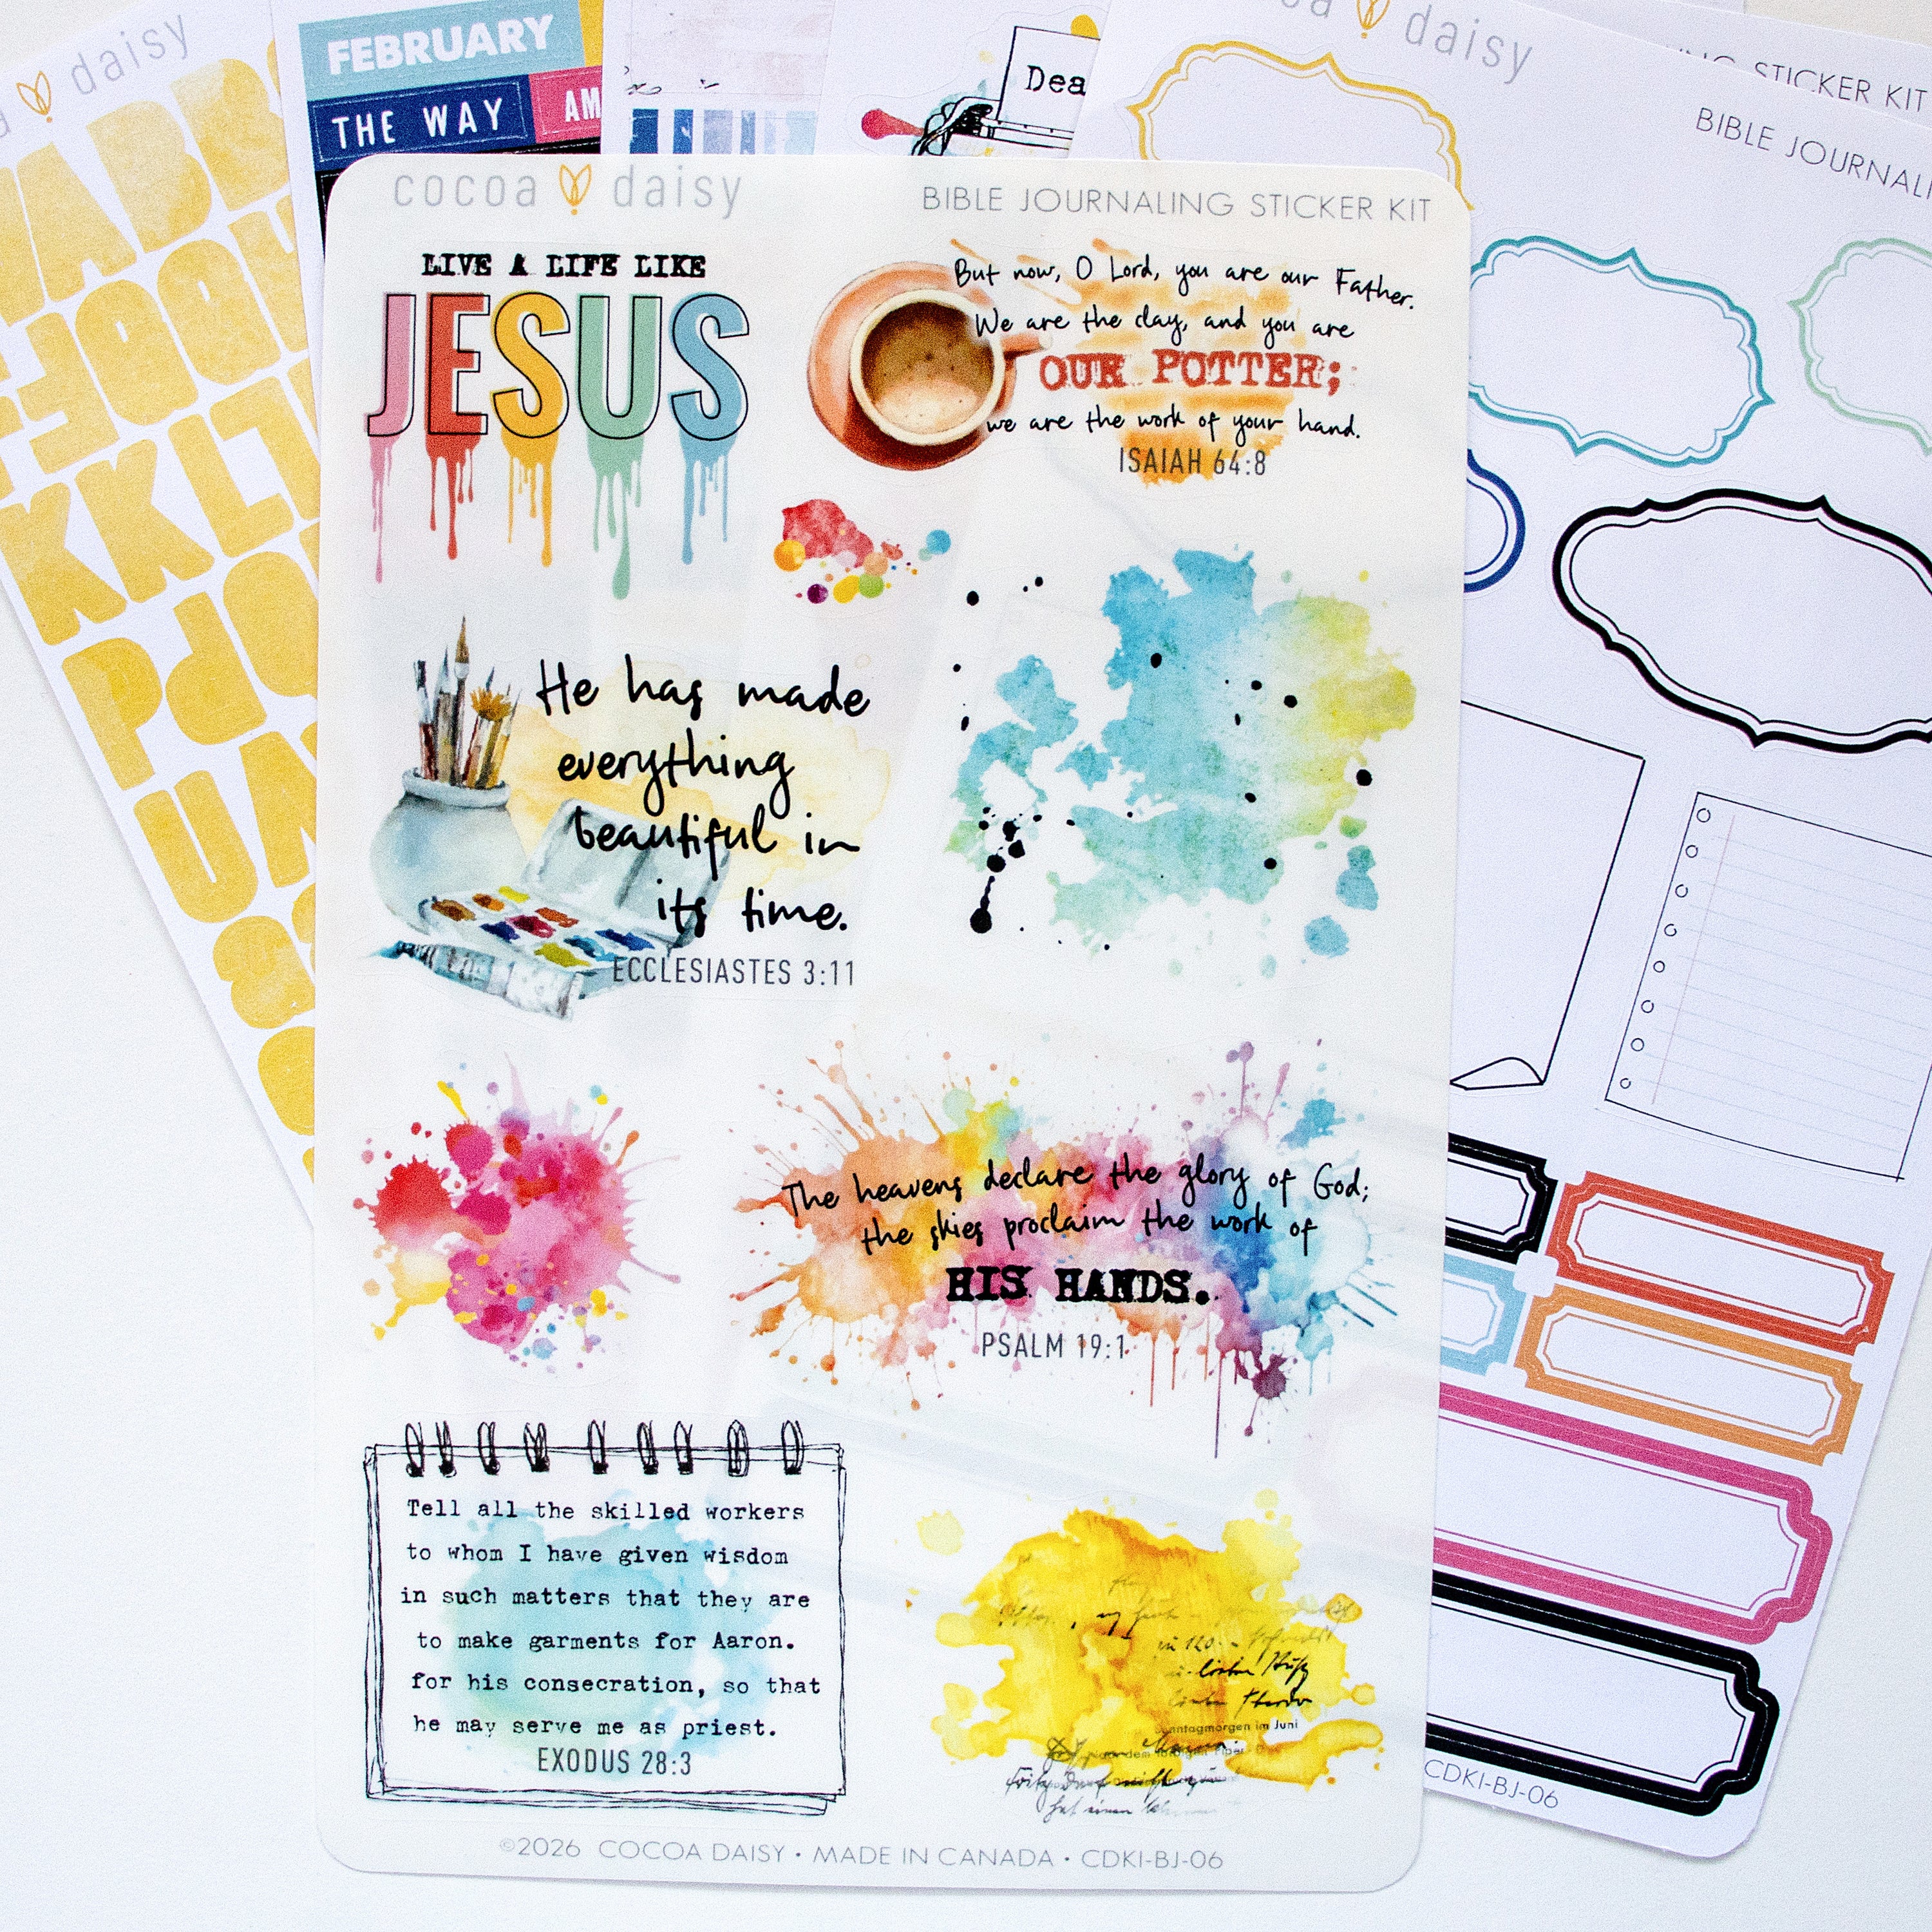 daisy
FEBRUARY
THE WAY
AM
Dea
daisy
STICKER KIT
BIBLE JOURNALI
cocoa daisy
BIBLE JOURNALING STICKER KIT
LIVE A LIFE LIKE
JESUS
But now, O Lord, you are our Father.
We are the clay, and you are
OUR POTTER;
we are the work of your hand.
ISAIAH 64:8
He has made
everything
beautiful in
its time.
ECCLESIASTES 3:11
The heavens declare the glory of God;
the skies proclaim the work of
HIS HANDS.
PSALM 19:1
Tell all the skilled workers
to whom I have given wisdom
in such matters that they are
to make garments for Aaron.
for his consecration, so that
he may serve me as priest.
EXODUS 28:3
nntagmorgen im Juni
©2026 COCOA DAISY • MADE IN CANADA • CDKI-BJ-06
CDKI-BJ-06